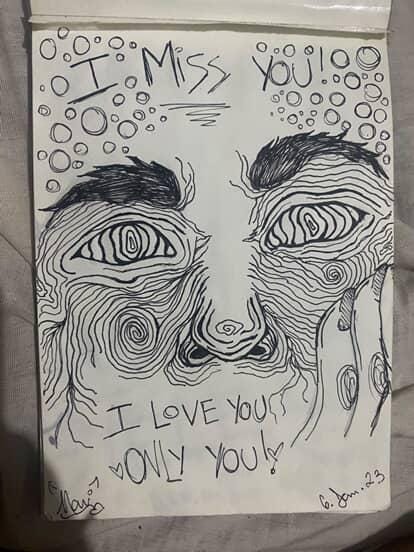 I MISS YOU!
I LOVE YOU
ONLY YOU!
6. Jan. 23